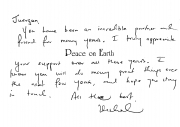 Juergen,
You have been an incredible partner and
friend for many years. I truly appreciate
Peace on Earth
your support over all those years. I
know you will do many great things over
the next few years, and hope you stay
in touch.
All the best,
Michael